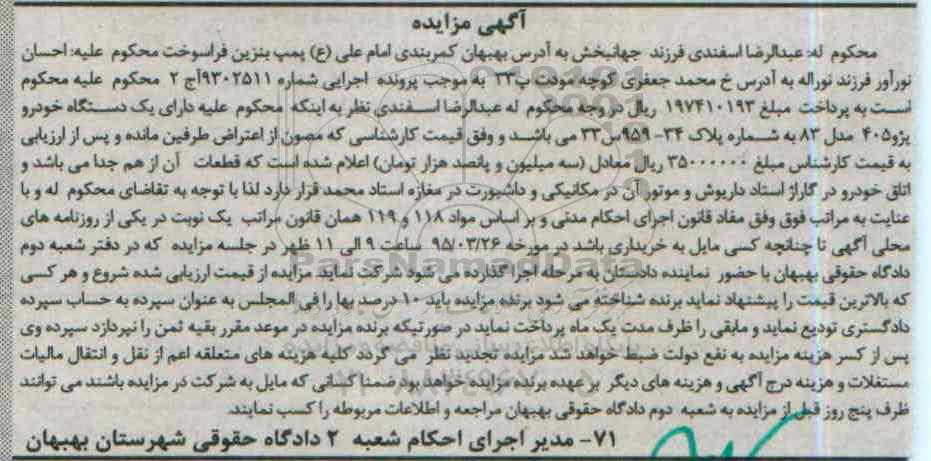 آگهی مزایده
محکوم له: عبدالرضا اسفندی فرزند جهانبخش به آدرس بهبهان کمربندی امام علی (ع) پمپ بنزین فراسوخت محکوم علیه: احسان
نورآور فرزند نوراله به آدرس خ محمد جعفری کوچه مودت پ۳۳ به موجب پرونده اجرایی شماره ۹۳۰۲۵۱۱آج ۲ محکوم علیه محکوم
است به پرداخت مبلغ ۱۹۷۴۱۰۱۹۳ ریال در وجه محکوم له عبدالرضا اسفندی نظر به اینکه محکوم علیه دارای یک دستگاه خودرو
پژو۴۰۵ مدل ۸۳ به شماره پلاک ۳۴- ۹۵۹س۳۳ می باشد و وفق قیمت کارشناسی که مصون از اعتراض طرفین مانده و پس از ارزیابی
به قیمت کارشناس مبلغ ۳۵۰۰۰۰۰۰ ریال معادل (سه میلیون و پانصد هزار تومان) اعلام شده است که قطعات آن از هم جدا می باشد و
اتاق خودرو در گاراژ استاد داریوش و موتور آن در مکانیکی و داشبورت در مغازه استاد محمد قرار دارد لذا با توجه به تقاضای محکوم له و با
عنایت به مراتب فوق وفق مفاد قانون اجرای احکام مدنی و بر اساس مواد ۱۱۸ و ۱۱۹ همان قانون مراتب یک نوبت در یکی از روزنامه های
محلی آگهی تا چنانچه کسی مایل به خریداری باشد در مورخه ۹۵/۰۳/۲۶ ساعت ۹ الی ۱۱ ظهر در جلسه مزایده که در دفتر شعبه دوم
دادگاه حقوقی بهبهان با حضور نماینده دادستان به مرحله اجرا گذارده می شود شرکت نماید مزایده از قیمت ارزیابی شده شروع و هر کسی
که بالاترین قیمت را پیشنهاد نماید برنده شناخته می شود برنده مزایده باید ۱۰ درصد بها را فی المجلس به عنوان سپرده به حساب سپرده
دادگستری تودیع نماید و مابقی را ظرف مدت یک ماه پرداخت نماید در صورتیکه برنده مزایده در موعد مقرر بقیه ثمن را نپردازد سپرده وی
پس از کسر هزینه مزایده به نفع دولت ضبط خواهد شد مزایده تجدید نظر می گردد کلیه هزینه های متعلقه اعم از نقل و انتقال مالیات
مستغلات و هزینه درج آگهی و هزینه های دیگر بر عهده برنده مزایده خواهد بود ضمنا کسانی که مایل به شرکت در مزایده باشند می توانند
ظرف پنج روز قبل از مزایده به شعبه دوم دادگاه حقوقی بهبهان مراجعه و اطلاعات مربوطه را کسب نمایند.
۷۱- مدیر اجرای احکام شعبه ۲ دادگاه حقوقی شهرستان بهبهان
ParsNamadData